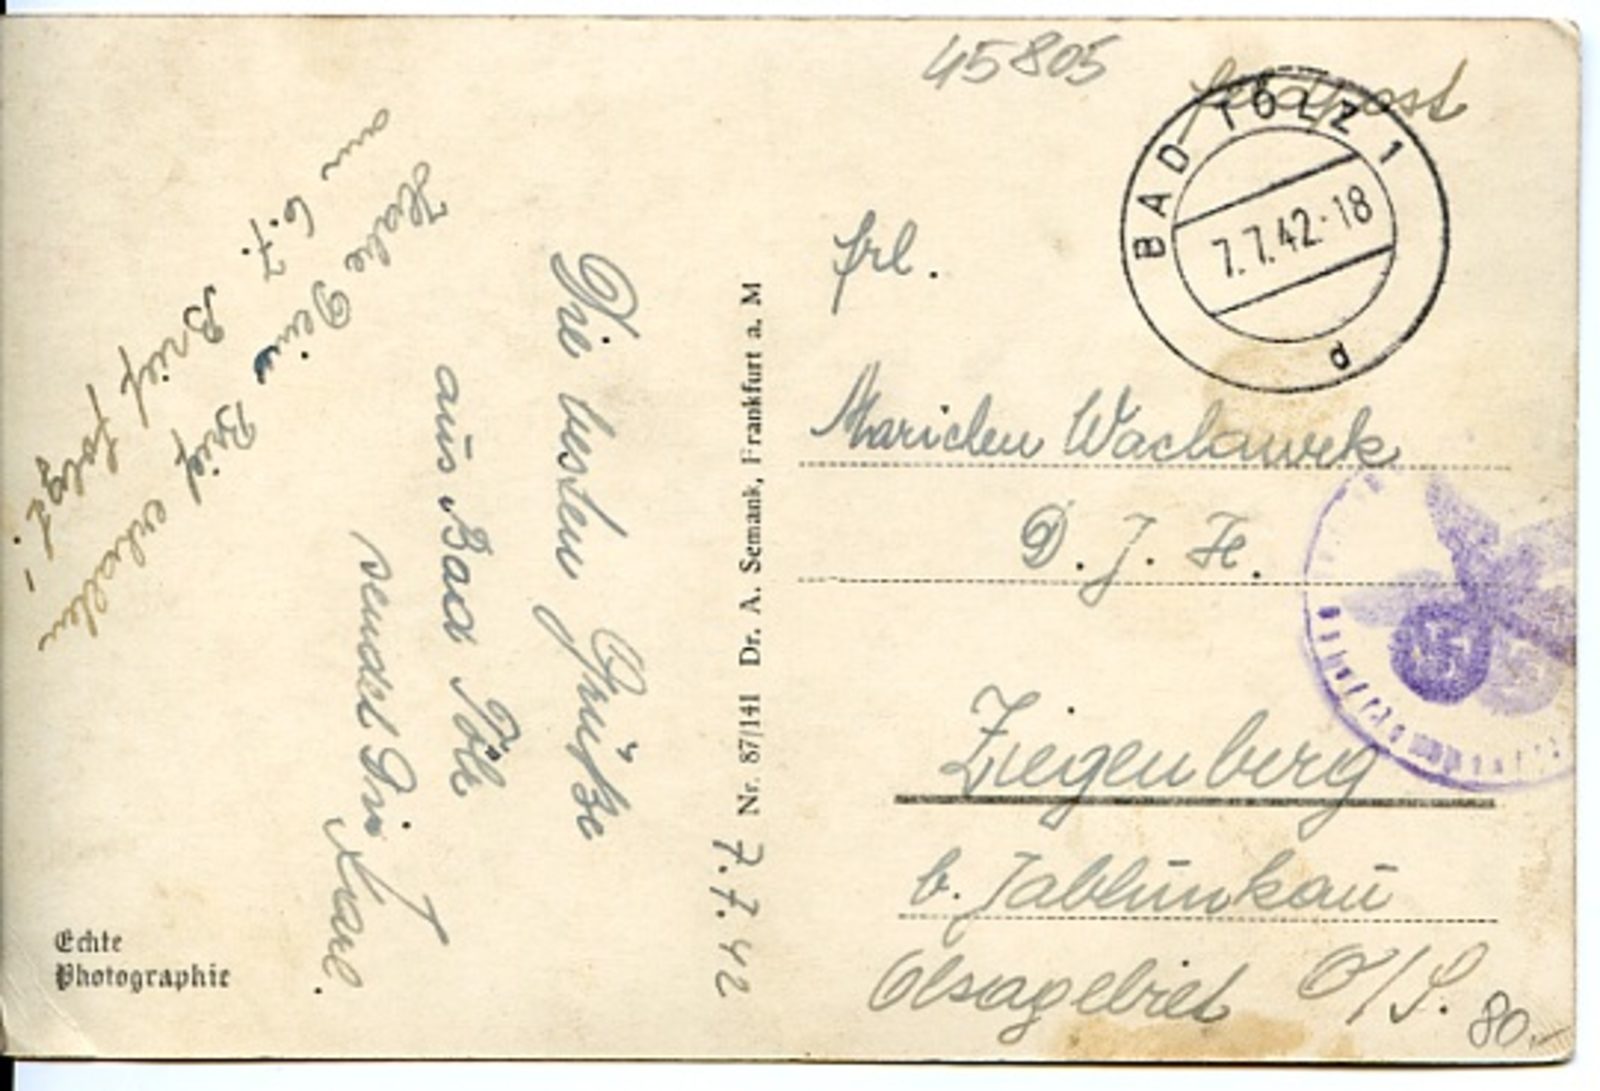 45805
Feldpost
BAD TÖLZ 1
7.7.42-18
d
Frl.
Mariechen Waclawek
D. J. H.
Ziegenberg
b. Jablunkau
Olsagebiet O/S.
80.-
Die besten Grüße
aus Bad Tölz
sendet Dir
Karl.
Habe Deinen Brief erhalten
am 6.7.
Brief folgt!
Nr. 87/141 Dr. A. Semank, Frankfurt a. M
7.7.42
Echte
Photographie